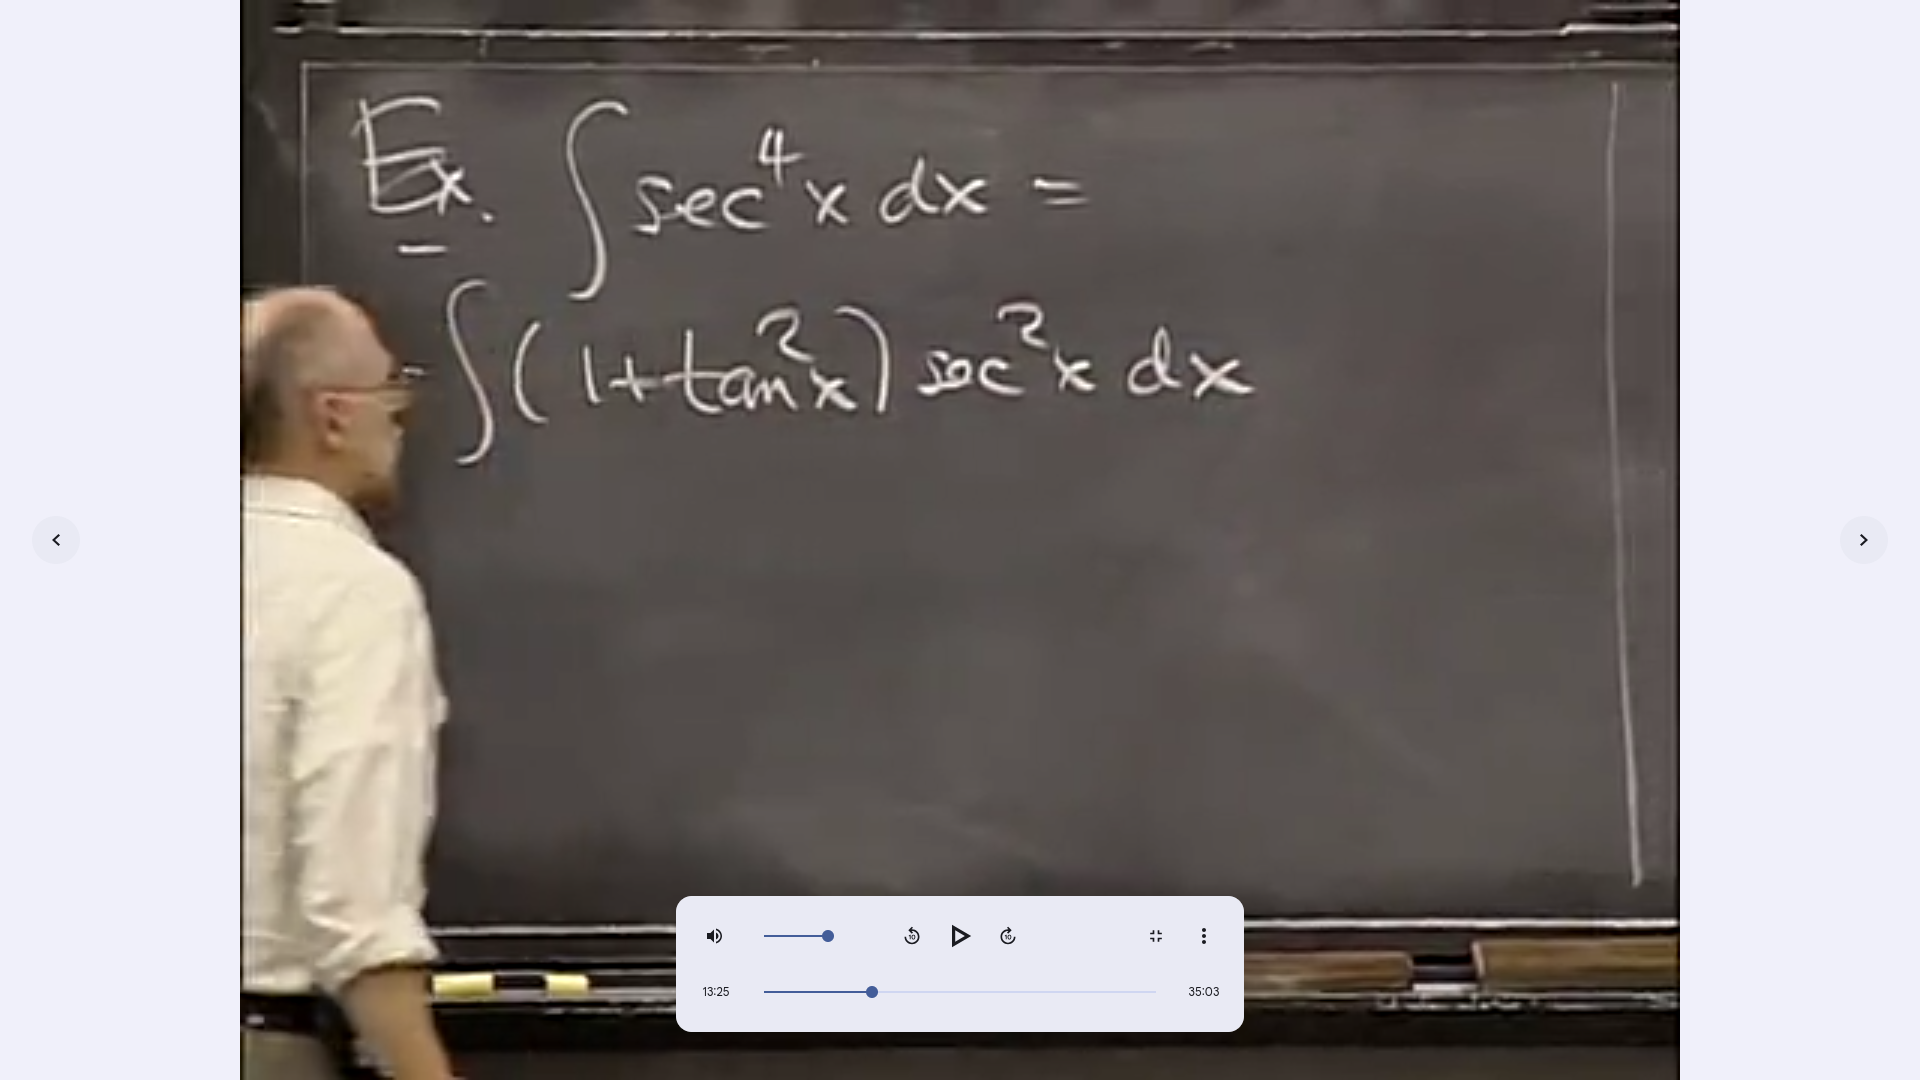 Ex. ∫ sec⁴x dx =
= ∫(1+tan²x) sec²x dx
10
10
13:25
35:03